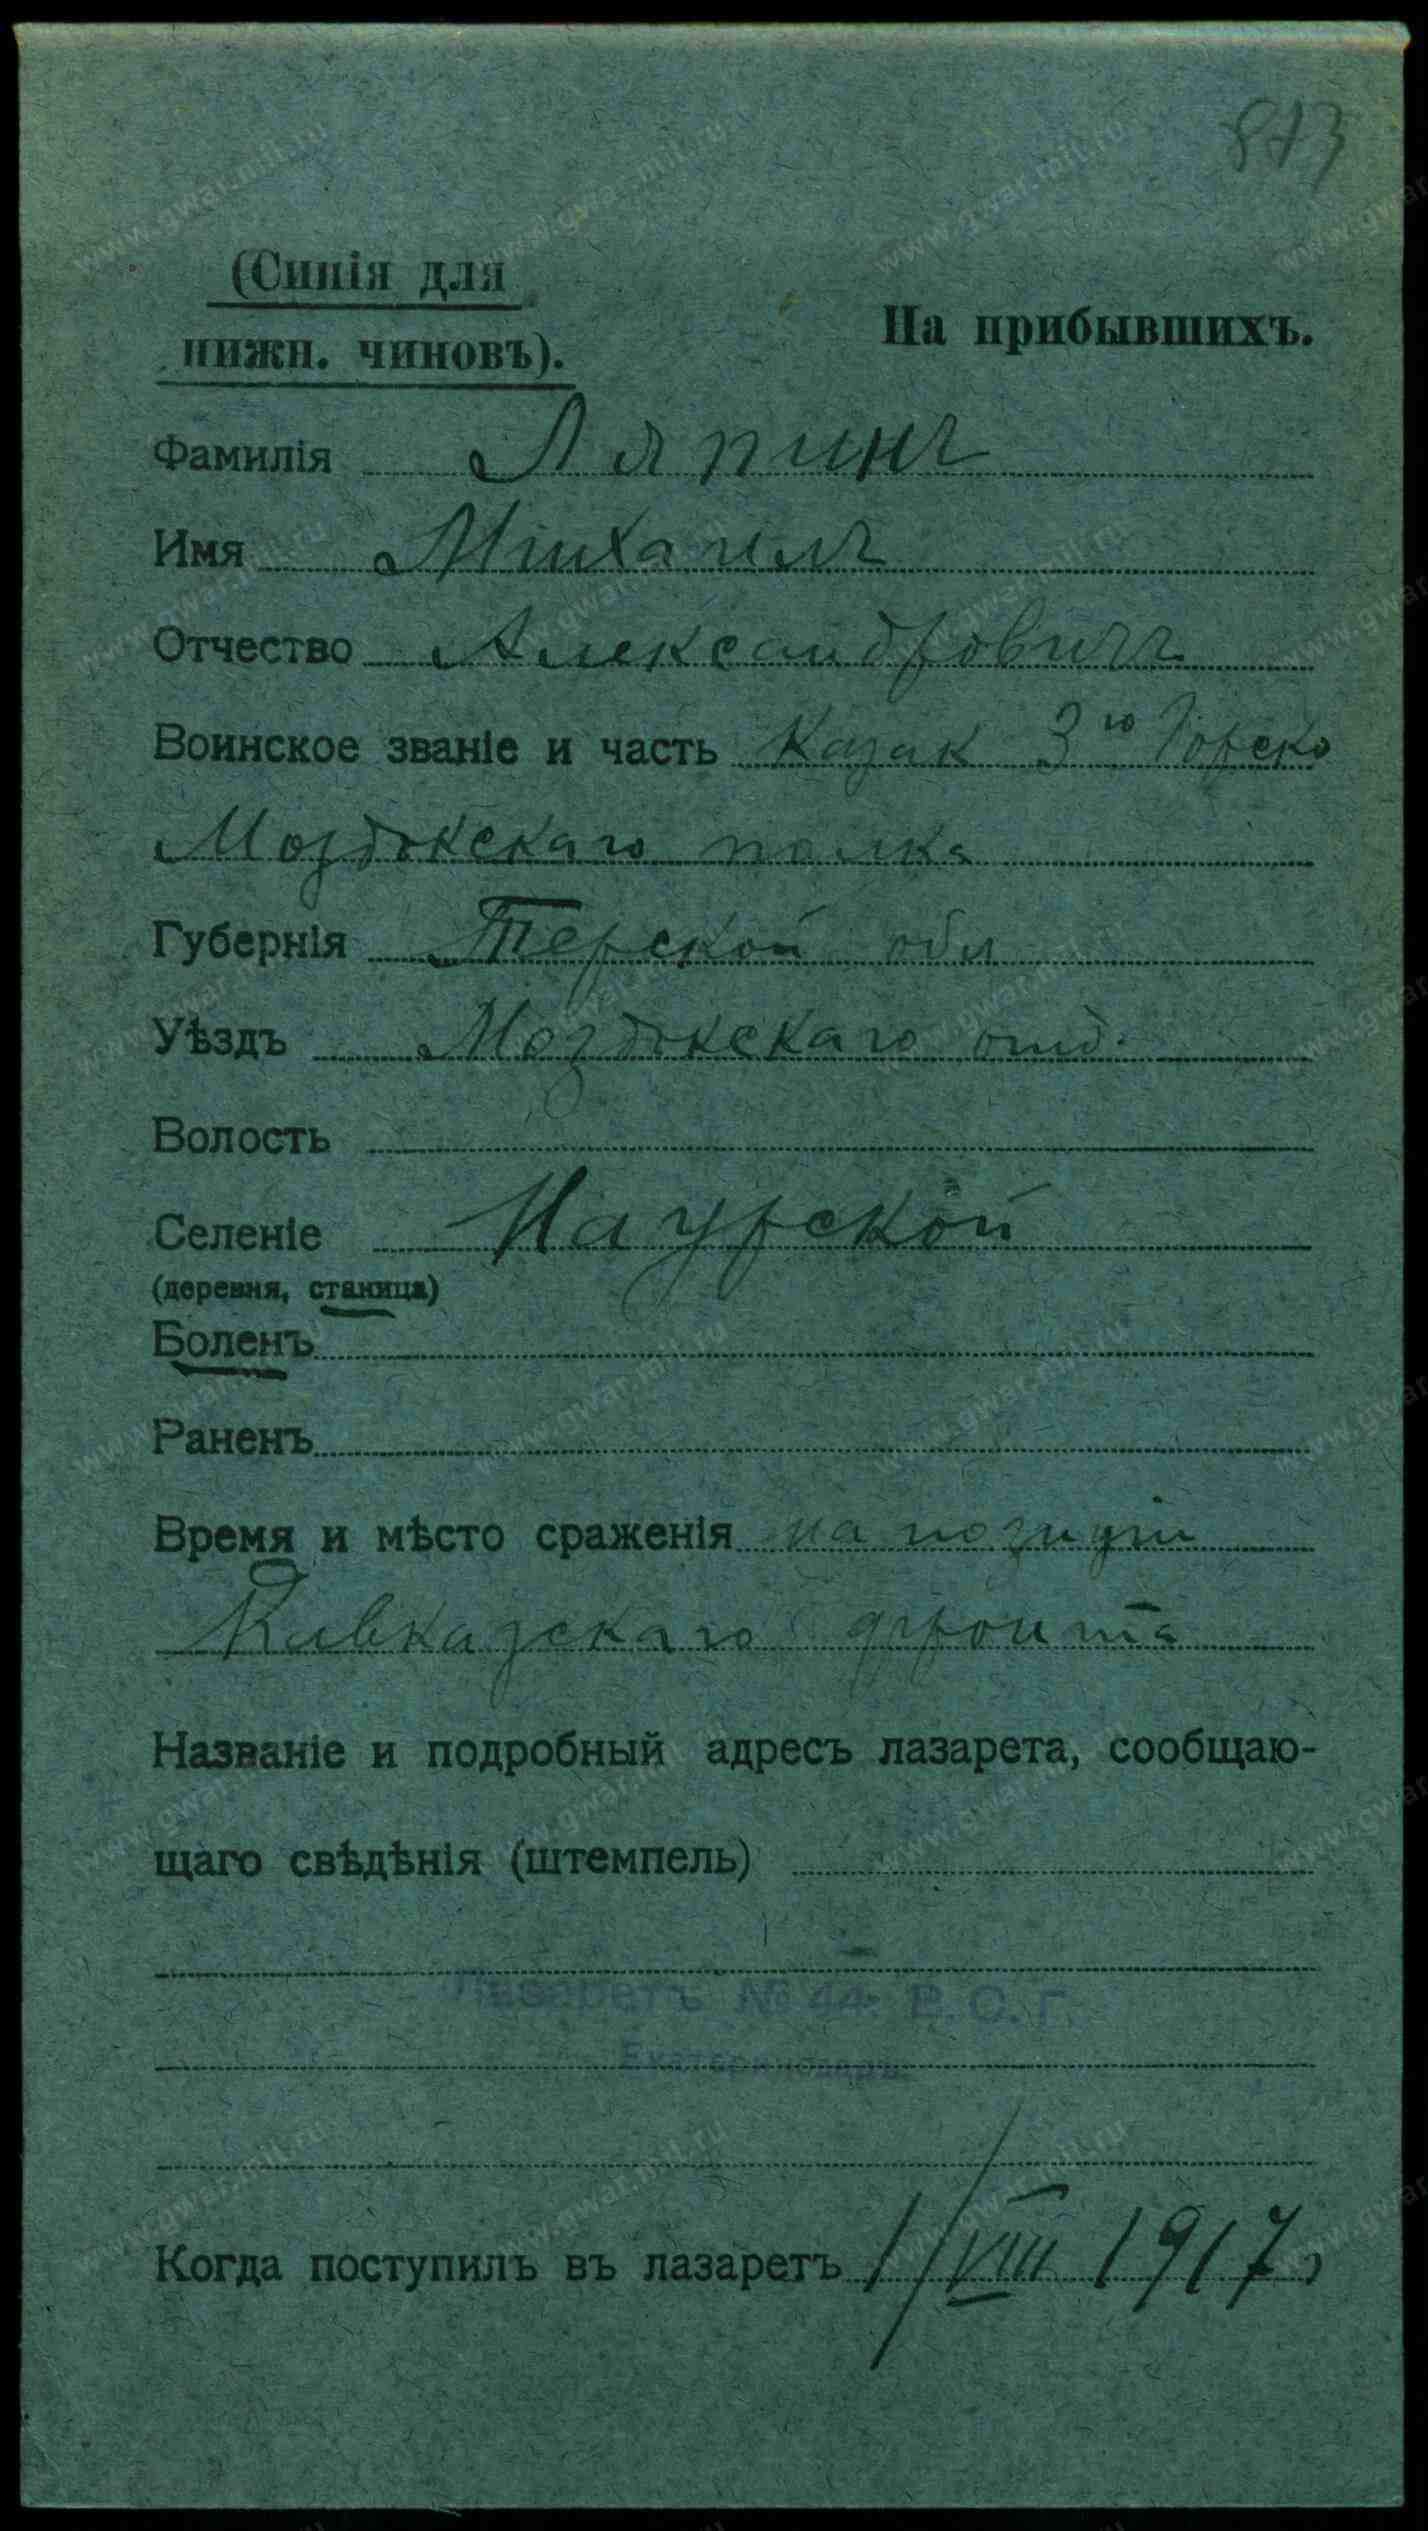 873
(Синія для
нижн. чиновъ).
На прибывшихъ.
Фамилія Ляпинъ
Имя Михаилъ
Отчество Александровичъ
Воинское званіе и часть Казак 3го Горско
Моздокскаго полка
Губернія Терской обл
Уѣздъ Моздокскаго отд.
Волость
Селеніе Наурской
(деревня, станица)
Боленъ
Раненъ
Время и мѣсто сраженія на позиціи
Кавказскаго фронта
Названіе и подробный адресъ лазарета, сообщаю-
щаго свѣдѣнія (штемпель)
Лазаретъ № 44 В. С. Г.
Екатеринодаръ
Когда поступилъ въ лазаретъ 1/VIII 1917